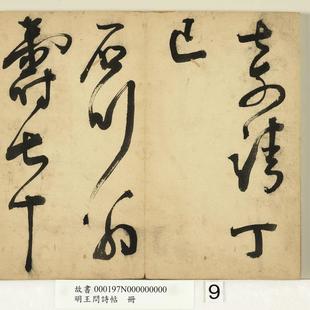 嘉靖丁
巳
石川翁
壽七十
故書 000197N000000000
明王問詩帖 冊
9